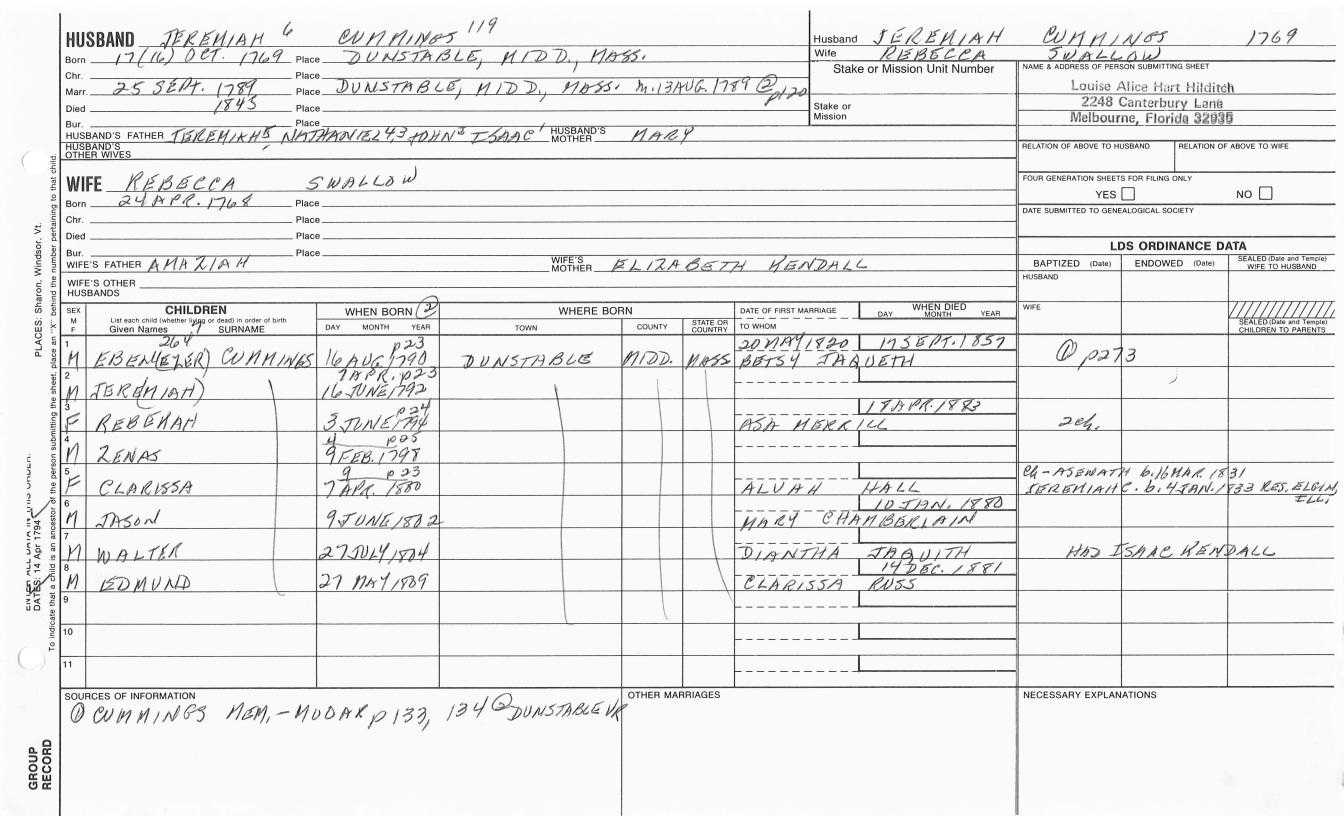 HUSBAND JEREMIAH 6 CUMMINGS 119
Born 17(16) OCT. 1769 Place DUNSTABLE, MIDD., MASS.
Chr. Place
Marr. 25 SEPT. 1789 Place DUNSTABLE, MIDD., MASS. m. 13 AUG. 1789 ② p120
Died 1845
Bur. Place
HUSBAND'S FATHER JEREMIAH5 NATHANIEL4,3 JOHN2 ISAAC1 HUSBAND'S MOTHER MARY
HUSBAND'S OTHER WIVES
WIFE REBECCA SWALLOW
Born 24 APR. 1768 Place
Chr. Place
Died Place
Bur. Place
WIFE'S FATHER AMAZIAH WIFE'S MOTHER ELIZABETH KENDALL
WIFE'S OTHER HUSBANDS
Husband JEREMIAH CUMMINGS 1769
Wife REBECCA SWALLOW
Stake or Mission Unit Number
Stake or Mission
NAME & ADDRESS OF PERSON SUBMITTING SHEET
Louise Alice Hart Hilditch
2248 Canterbury Lane
Melbourne, Florida 32935
RELATION OF ABOVE TO HUSBAND RELATION OF ABOVE TO WIFE
FOUR GENERATION SHEETS FOR FILING ONLY
YES NO
DATE SUBMITTED TO GENEALOGICAL SOCIETY
LDS ORDINANCE DATA
BAPTIZED (Date) ENDOWED (Date) SEALED (Date and Temple) WIFE TO HUSBAND
HUSBAND
WIFE
SEALED (Date and Temple) CHILDREN TO PARENTS
SEX M F
CHILDREN
List each child (whether living or dead) in order of birth
Given Names SURNAME
WHEN BORN ②
DAY MONTH YEAR
WHERE BORN
TOWN COUNTY STATE OR COUNTRY
DATE OF FIRST MARRIAGE
TO WHOM
WHEN DIED
DAY MONTH YEAR
264 p23 20 MAY 1820 17 SEPT. 1857
1 M EBEN(EZER) CUMMINGS 16 AUG. 1790 DUNSTABLE MIDD. MASS BETSY JAQUETH ① p273
7 APR. p23
2 M JERE(MIAH) 16 JUNE 1792
p24 18 APR. 1883
3 F REBEKAH 3 JUNE 1794 ASA MERRILL 2 ch.
4 p25
4 M ZENAS 9 FEB. 1798
9 p23 Ch - ASENATH b. 16 MAR. 1831
5 F CLARISSA 7 APR. 1880 ALVAH HALL JEREMIAH C. b. 4 JAN. 1833 RES. ELGIN, ILL.
10 JAN. 1880
6 M JASON 9 JUNE 1802 MARY CHAMBERLAIN
7 M WALTER 27 JULY 1804 DIANTHA JAQUITH HAD ISAAC KENDALL
14 DEC. 1881
8 M EDMUND 27 MAY 1809 CLARISSA RUSS
9
10
11
SOURCES OF INFORMATION
① CUMMINGS MEM. - MUDAR p 133, 134 ② DUNSTABLE VR
OTHER MARRIAGES
NECESSARY EXPLANATIONS
PLACES: Sharon, Windsor, Vt.
DATES: 14 Apr 1794
To indicate that a child is an ancestor of the person submitting the sheet, place an "X" behind the number pertaining to that child.
GROUP RECORD